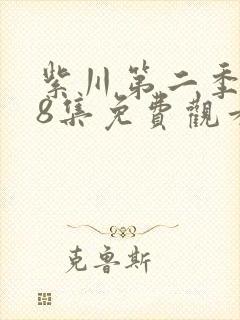 紫川第二季
8集免費觀看
克魯斯